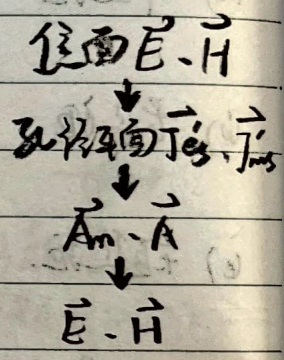 位面 E⃗、H⃗
↓
孔径平面 J⃗'es、J⃗'ms
↓
A⃗m、A⃗
↓
E⃗、H⃗